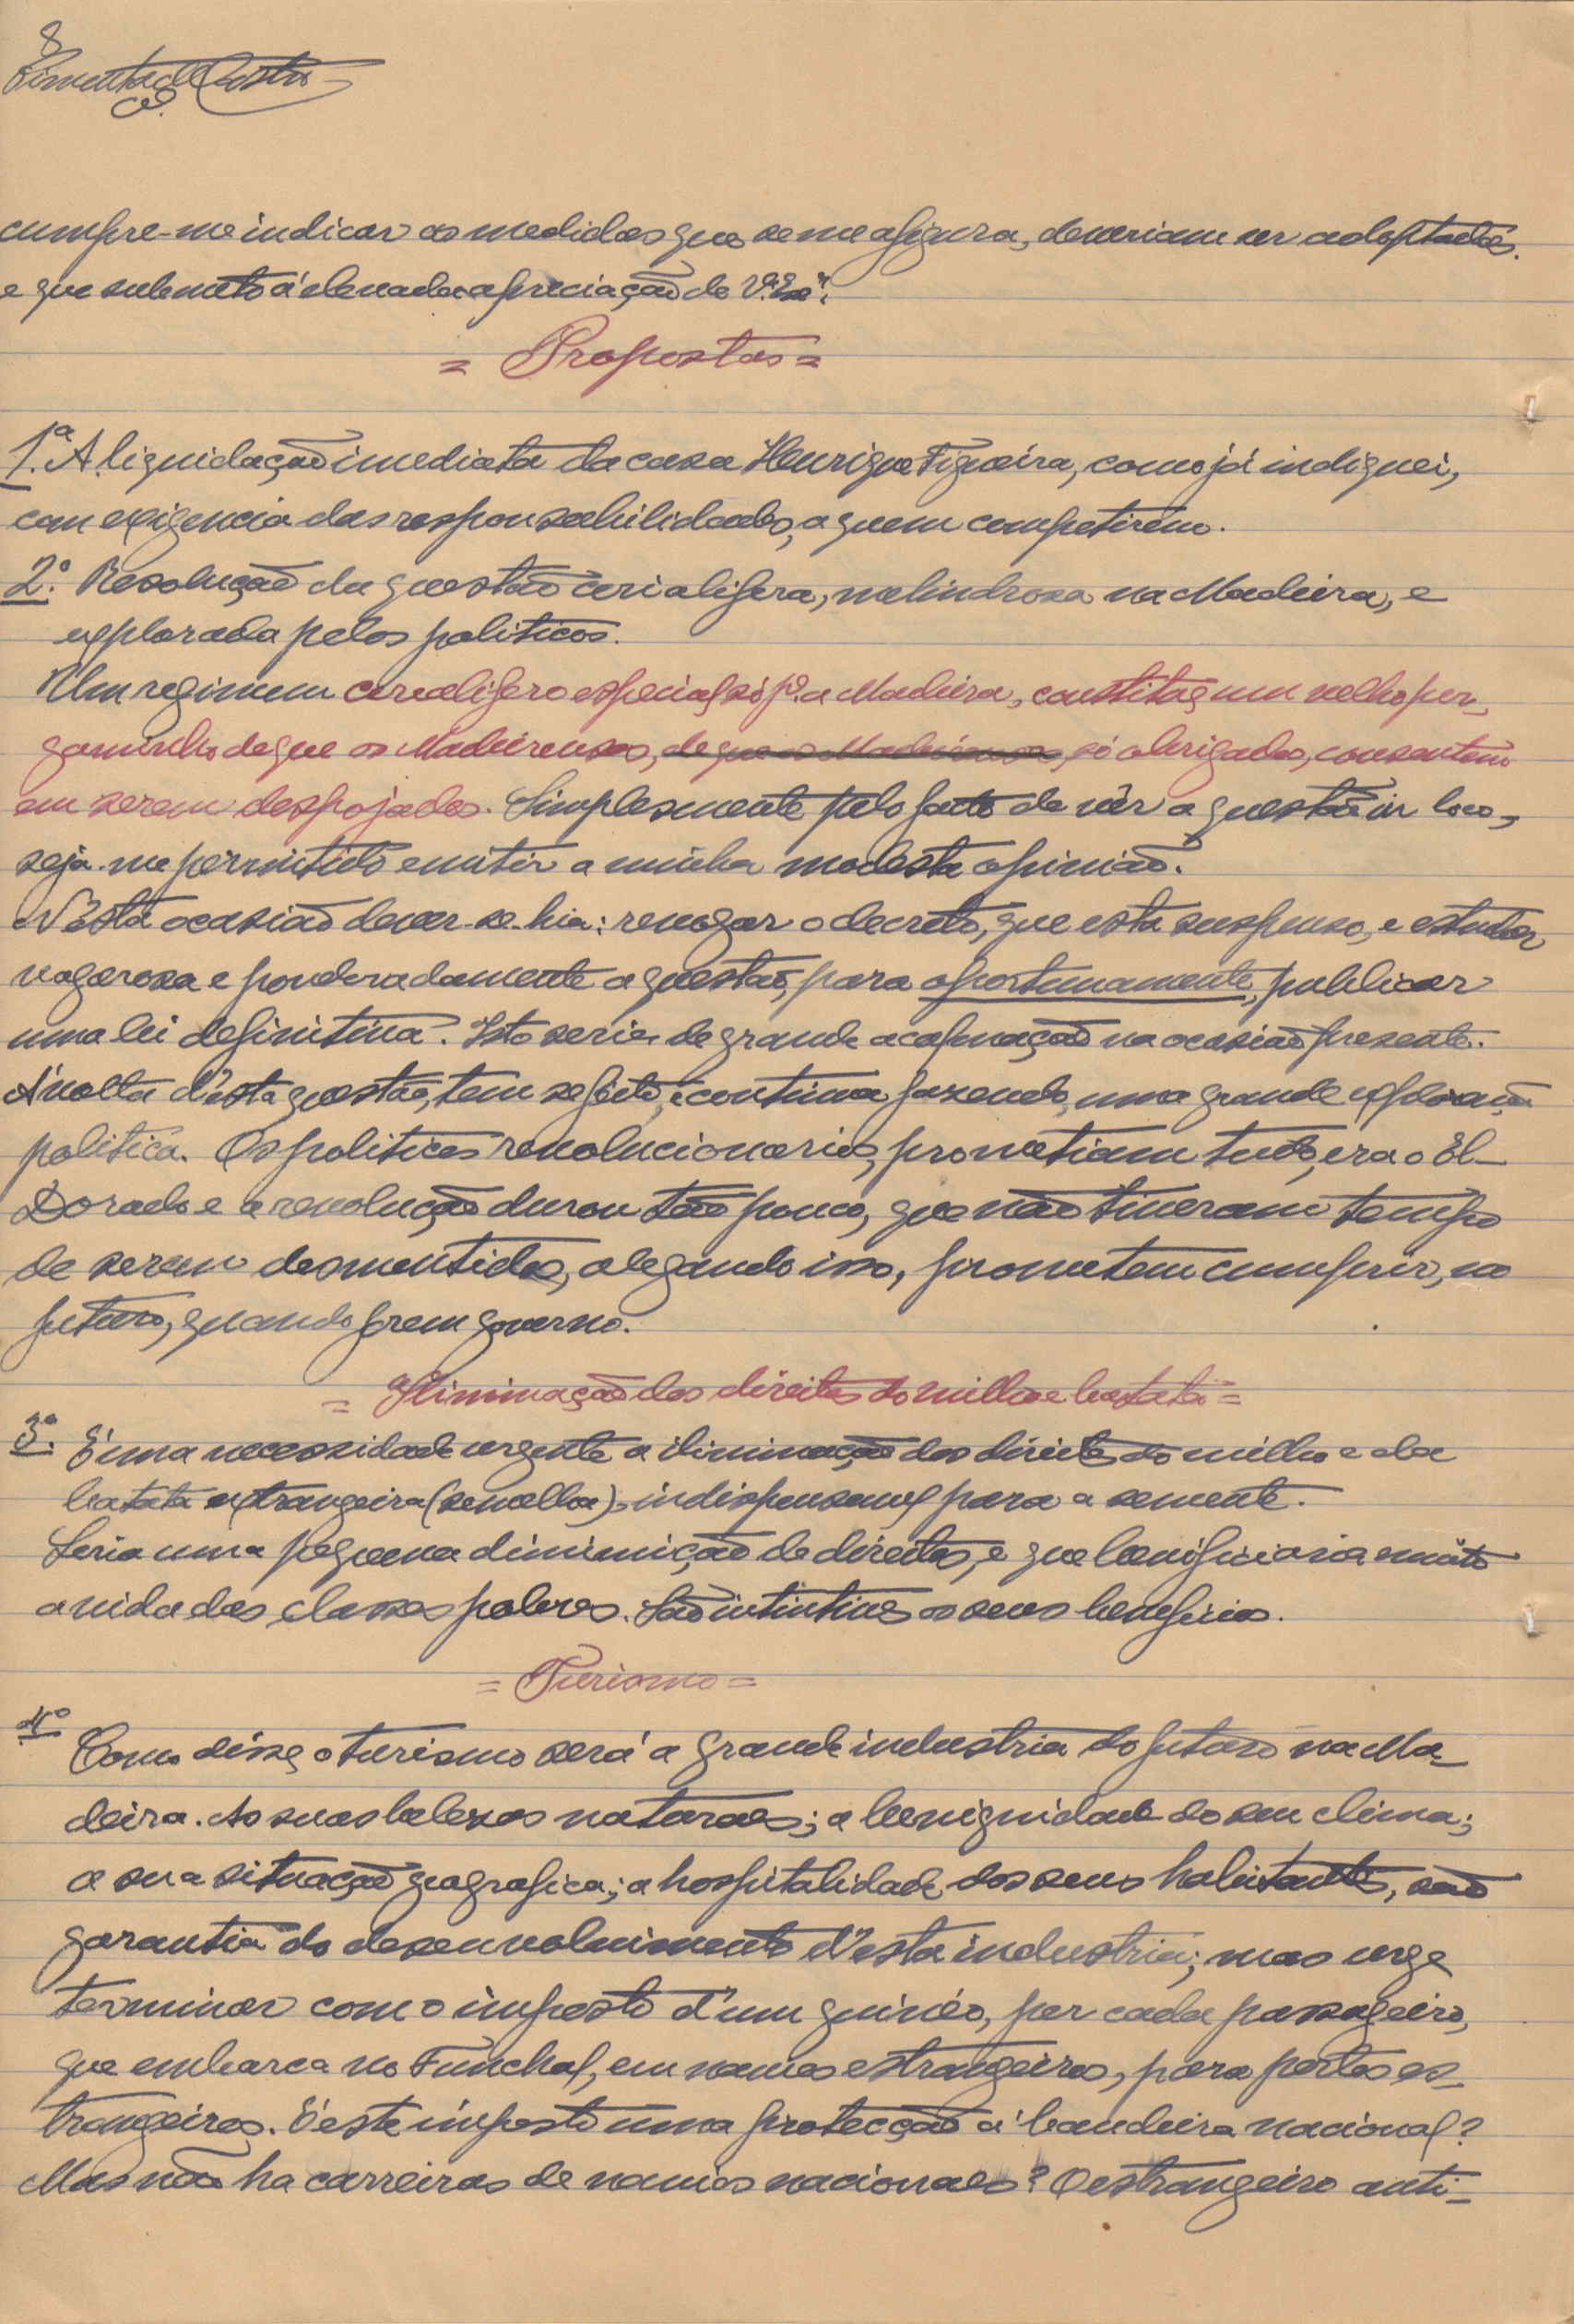 8
Pimenta de Castro
cumpre-me indicar as medidas que se me afigura, deveriam ser adoptadas.
e que submeto á elevada apreciação de V.ª Ex.ª:
= Propostas =
1.ª A liquidação imediata da casa Henrique Figueira, como já indiquei,
com exigencia das responsabilidades, a quem competirem.
2.º Resolução da questão cerialifera, melindrosa na Madeira, e
explorada pelos politicos.
Um regimem cerealifero especial só p.ª a Madeira, constitue um velho per-
gaminho de que os Madeirenses, de que os Madeirenses, só obrigados, consentem
em serem despojados. Simplesmente pelo facto de vêr a questão in loco,
seja-me permitido emitir a minha modesta opinião.
N'esta ocasião dever-se-hia: revogar o decreto, que esta suspenso, e estudar
vagarosa e ponderadamente a questão, para oportunamente, publicar
uma lei definitiva. Isto seria de grande acalmação na ocasião presente.
Á volta d'esta questão, tem se feito, e continua fazendo, uma grande exploração
politica. Os politicos revolucionarios, prometiam tudo, era o El-
Dorado e a revolução durou tão pouco, que não tiveram tempo
de serem desmentidos, alegando isso, prometem cumprir, no
futuro, quando forem governo.
= Iliminação dos direitos do milho e batata =
3.º É uma necessidade urgente a iliminação dos direitos do milho e da
batata extrangeira (semelha) indispensavel para a semente.
Seria uma pequena diminuição de direitos, e que benificiaria muito
a vida das classes pobres. São intuitivos os seus beneficios.
= Turismo =
4.º
Como disse, o turismo será a grande industria do futuro na Ma-
deira. As suas belezas naturaes; a benignidade do seu clima;
a sua situação geografica; a hospitalidade dos seus habitantes, são
garantia do desenvolvimento d'esta industria; mas urge
terminar com o imposto d'um guinéo, por cada passageiro,
que embarca no Funchal, em navios estrangeiros, para portos es-
trangeiros. É este imposto uma protecção á bandeira nacional?
Mas não ha carreiras de navios nacionaes? O estrangeiro anti-